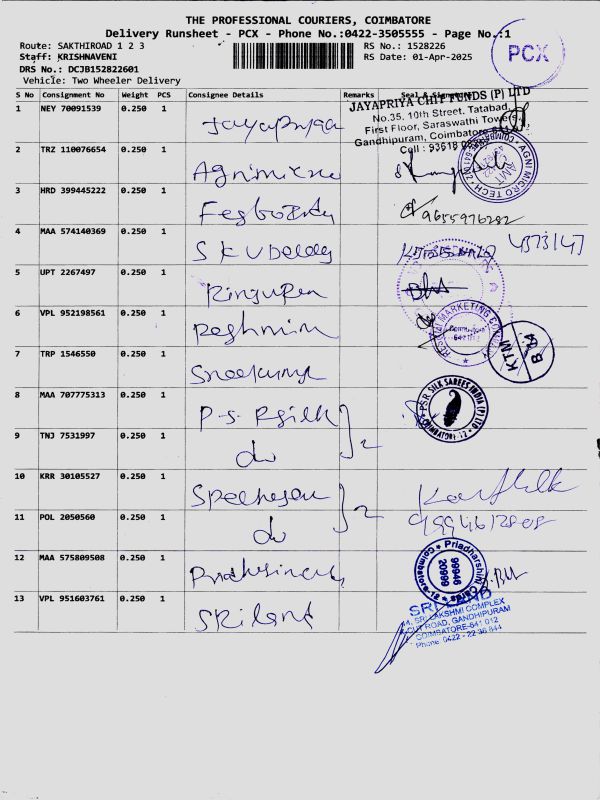 THE PROFESSIONAL COURIERS, COIMBATORE
Delivery Runsheet - PCX - Phone No.:0422-3505555 - Page No.:1
Route: SAKTHIROAD 1 2 3
RS No.: 1528226
Staff: KRISHNAVENI
RS Date: 01-Apr-2025
DRS No.: DCJB152822601
Vehicle: Two Wheeler Delivery
PCX
S No Consignment No Weight PCS Consignee Details Remarks Seal & Signature
1 NEY 70091539 0.250 1
JAYAPRIYA CHIT FUNDS (P) LTD
No.35, 10th Street, Tatabad,
First Floor, Saraswathi Towers,
Gandhipuram, Coimbatore
Cell : 93618
2 TRZ 110076654 0.250 1
AGNI MICRO TECH
3 HRD 399445222 0.250 1
9655976282
4 MAA 574140369 0.250 1 S K
5 UPT 2267497 0.250 1
6 VPL 952198561 0.250 1 Reshmim
MARKETING COMPANY
KTM
7 TRP 1546550 0.250 1
8 MAA 707775313 0.250 1 P.S. R silk
PSR SILK SAREES INDIA (P) LTD
COIMBATORE-12
2
9 TNJ 7531997 0.250 1 do
10 KRR 30105527 0.250 1
2
11 POL 2050560 0.250 1 do
12 MAA 575809508 0.250 1
Priadharshini
Coimbatore-12
99946
20999
13 VPL 951603761 0.250 1 SRiland
SRI LAND
44, SRI LAKSHMI COMPLEX
CUT ROAD, GANDHIPURAM
COIMBATORE-641 012
Phone: 0422 - 22 36 844